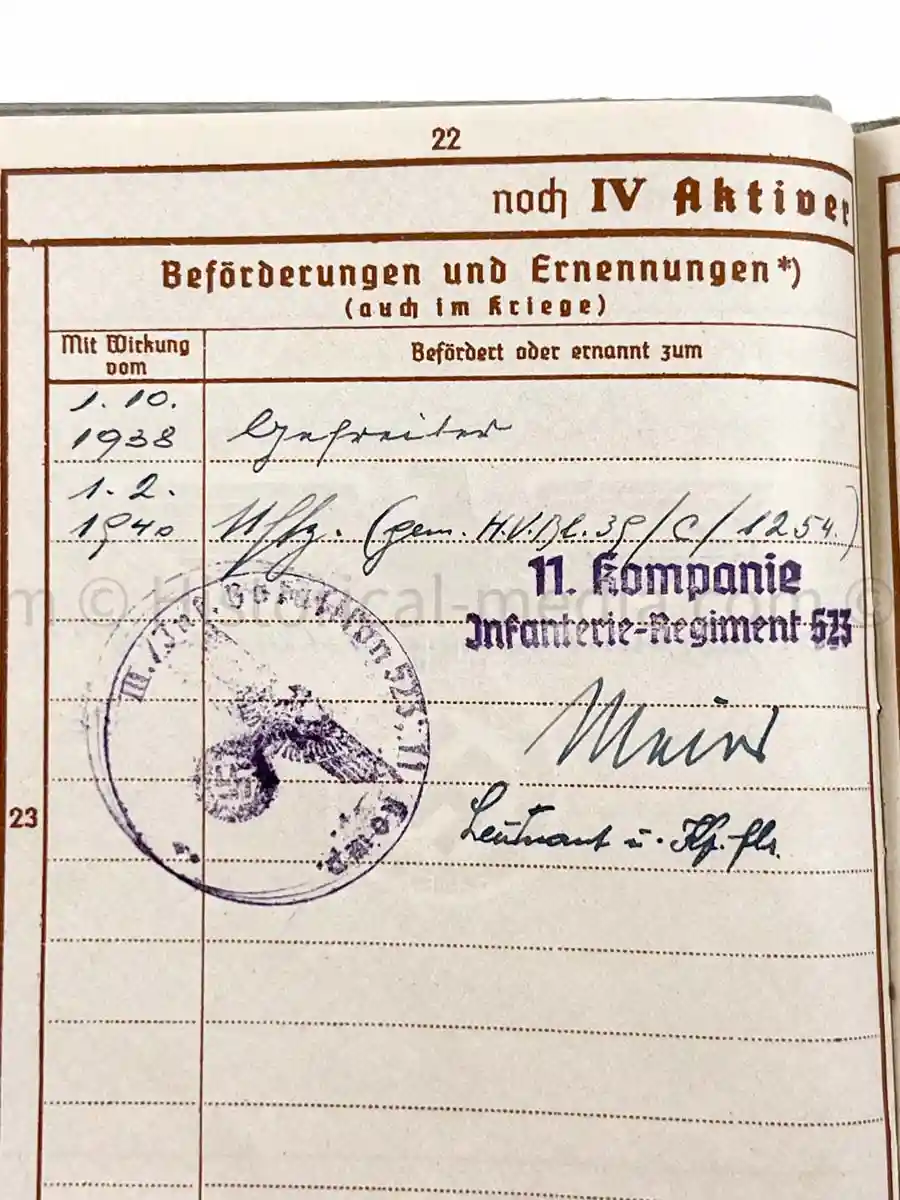 22
noch IV Aktiver
Beförderungen und Ernennungen*)
(auch im Kriege)
Mit Wirkung
vom
Befördert oder ernannt zum
1. 10.
1938 Gefreiter
1. 2.
1940 Uffz. (gem. H.V.Bl. 39/C/1254.)
11. Kompanie
Infanterie-Regiment 523
m © Historical-media.com ©
III./Inf. 523, 11. Komp.
Leutnant u. Kp.-Fhr.
23